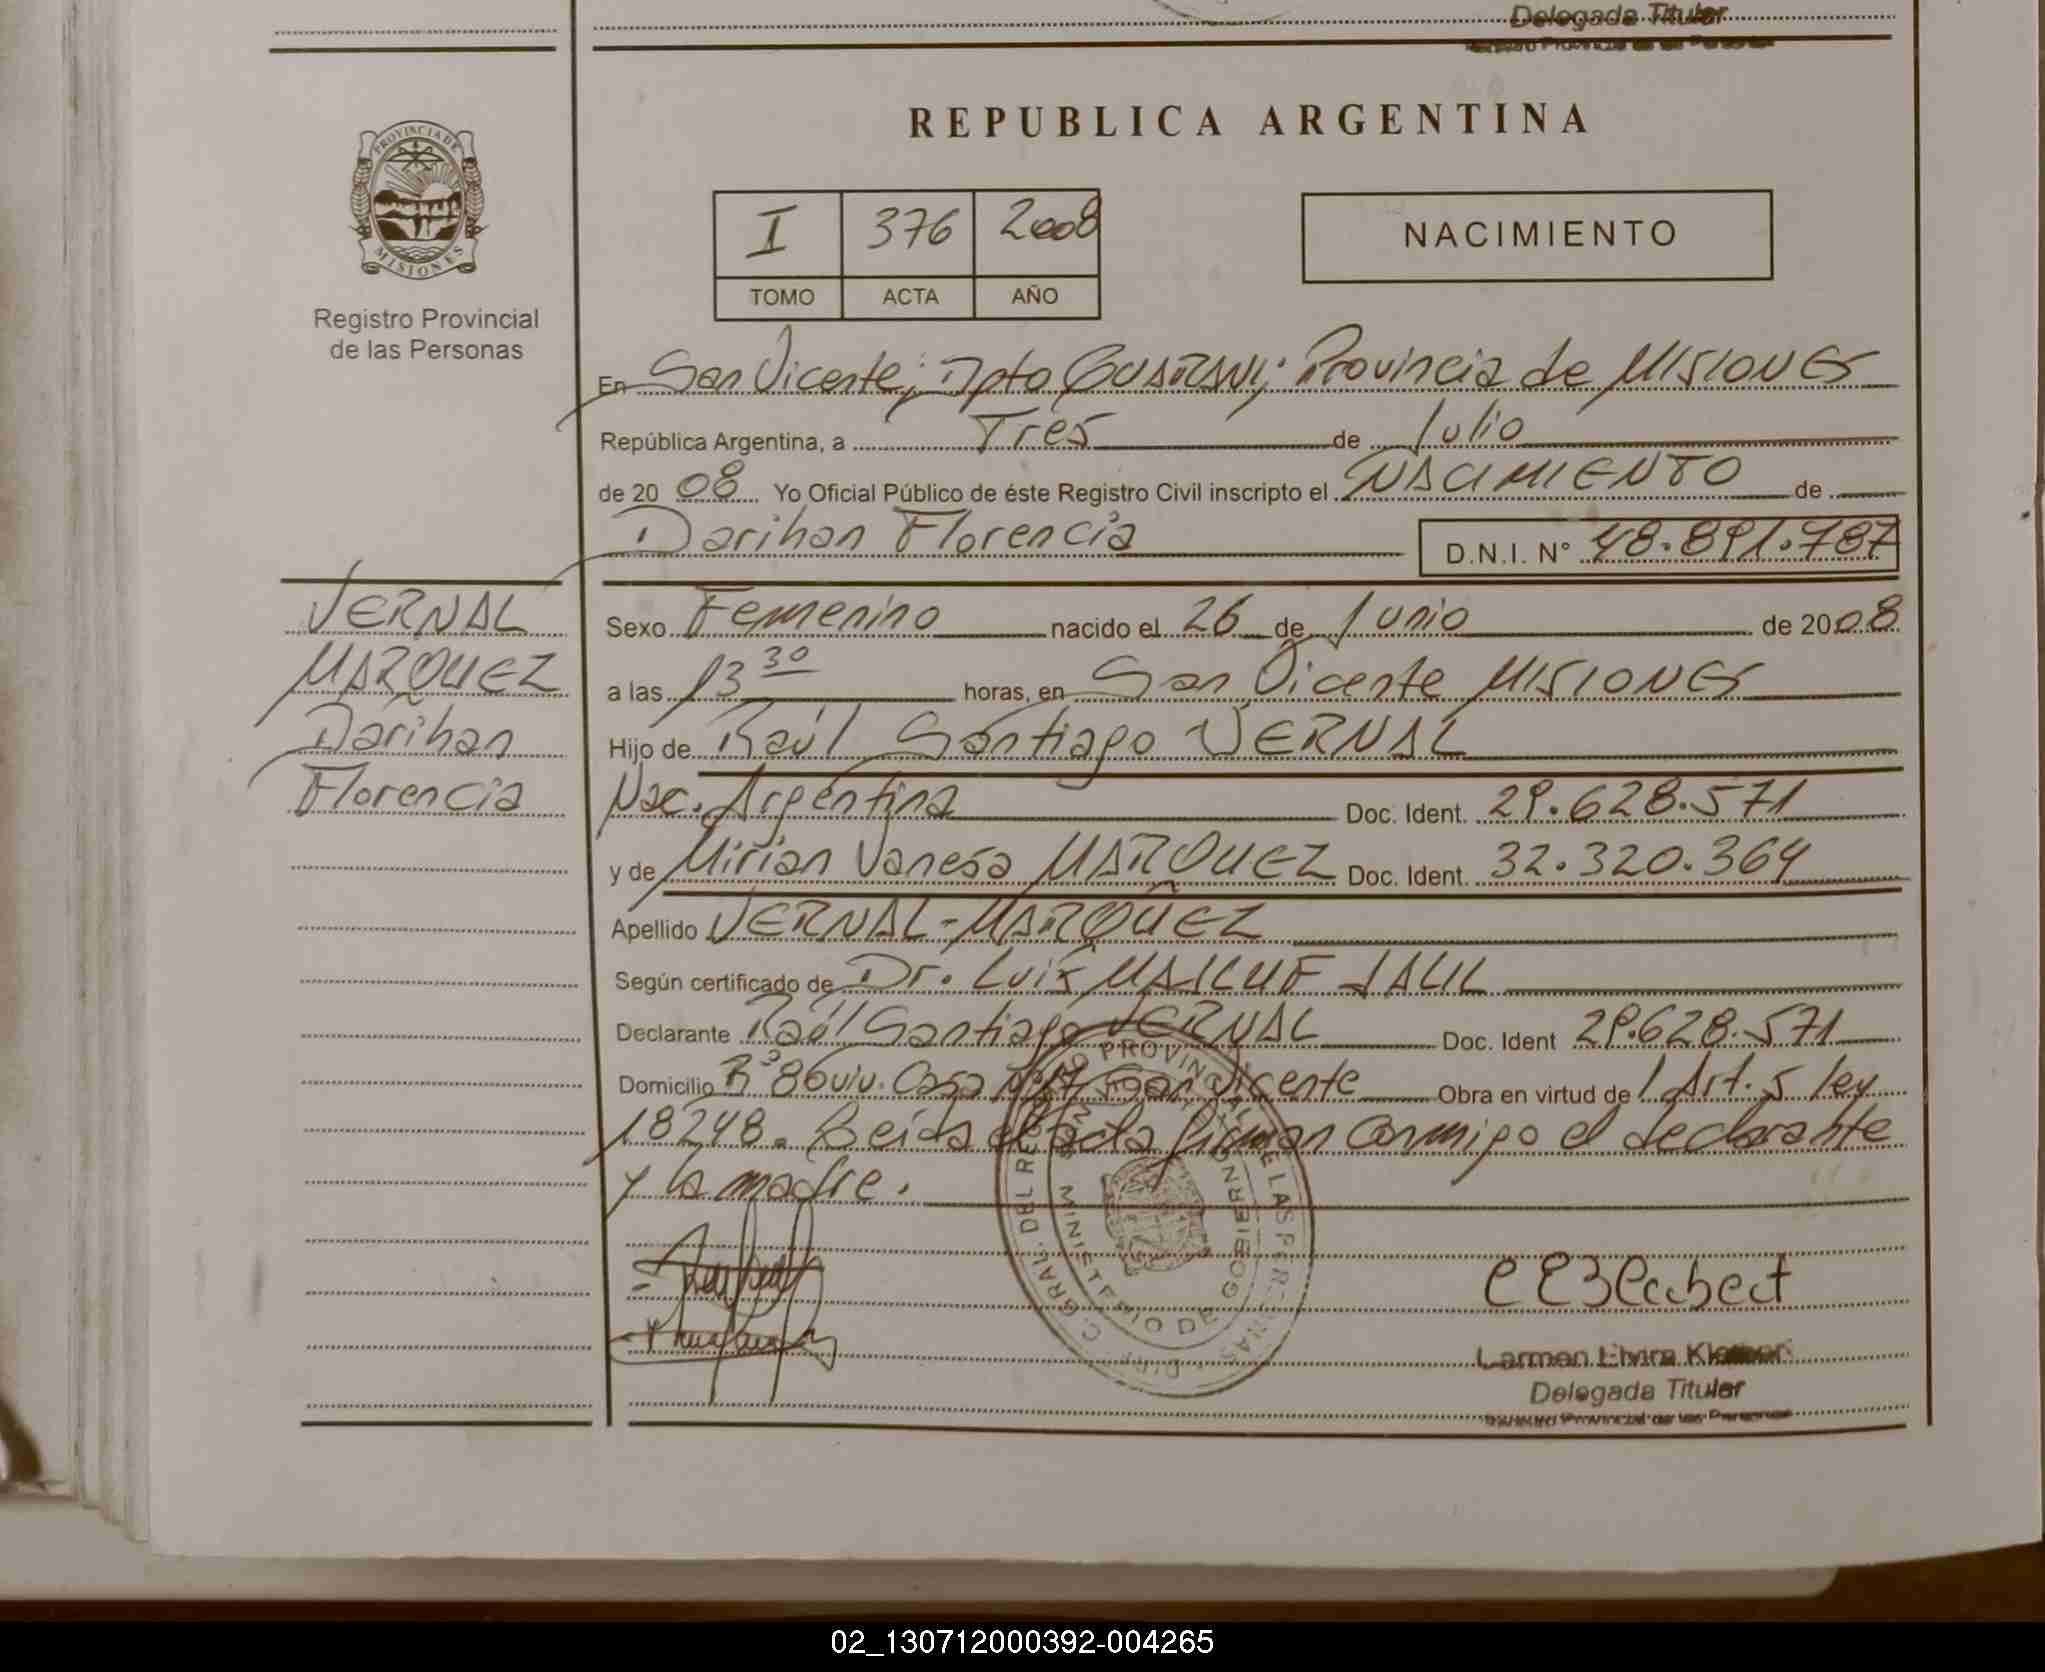 Delegada Titular
Registro Provincial de las Personas
REPUBLICA ARGENTINA
PROVINCIA DE MISIONES
I 376 2008
TOMO ACTA AÑO
NACIMIENTO
Registro Provincial
de las Personas
En San Vicente; Dpto GUARANI; Provincia de MISIONES
República Argentina, a Tres de Julio
de 20 08 Yo Oficial Público de éste Registro Civil inscripto el NACIMIENTO de
Darihan Florencia D.N.I. N° 48.891.787
VERNAL
MARQUEZ
Darihan
Florencia
Sexo Femenino nacido el 26 de Junio de 2008
a las 13 30 horas, en San Vicente MISIONES
Hijo de Raúl Santiago VERNAL
Nac. Argentina Doc. Ident. 29.628.571
y de Mirian Vanesa MARQUEZ Doc. Ident. 32.320.364
Apellido VERNAL-MARQUEZ
Según certificado de Dr. Luis MAILUF JALIL
Declarante Raúl Santiago VERNAL Doc. Ident 29.628.571
Domicilio B° 86 viv. Casa San Vicente Obra en virtud de l Art. 5 ley
18248. Leída el acta firman conmigo el declarante
y la madre.
MINISTERIO DE GOBIERNO
Carmen Elvira
Delegada Titular
Registro Provincial de las Personas
02_130712000392-004265